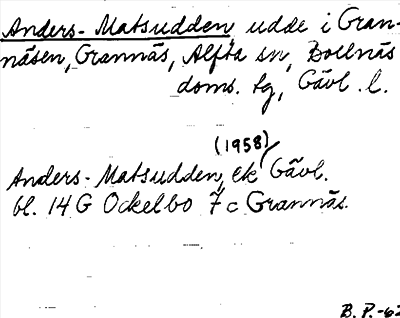 Anders-Matsudden udde i Gran-
näsen, Grannäs, Alfta sn, Bollnäs
doms. tg, Gävl. l.
(1958)
Anders-Matsudden, ek Gävl.
bl. 14 G Ockelbo 7 c Grannäs.
B. P.-62